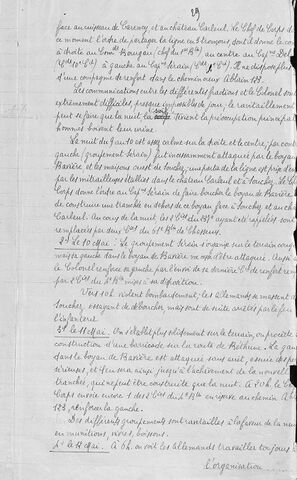 29
face au ruisseau de Carency et au château Carleul. Le Chef de Corps dès
ce moment l'ordre de partager la ligne en 3 tronçons dont il donne le
à droite au Comt Rougeau (chef du 1er Btn) au centre au Capne
à gauche au Capne Serain. Il ne dispose plus
d'une compagnie de renfort dans le chemin creux Ablain 123.
Les communications entre les différentes fractions et le Colonel sont
extrêmement difficiles, presque impossibles de jour; le ravitaillement
peut se faire que la nuit, la Tenient la préoccupation principale
hommes boivent leur urine.
La nuit du 9 au 10 est assez calme sur la droite et le centre; par cont
gauche (groupement Serain) fut incessamment attaquée par le boyau
Bavière et les maisons ouest de Souchez; une partie de la ligne est prise d'en
par les mitrailleuses établies dans le château Carleul et à Souchez. Le
donne l'ordre au Capne Serain de faire boucher le boyau de Bavière
de construire une tranchée en dehors de ce boyau face à Souchez et au ch
Carleul. Au cours de la nuit les 2 Cies du ayant été rappelées sont
remplacées par deux Cies du Btn de Chasseurs.
2e. le 10 Mai. Le groupement Serain s'organise sur le terrain con
mais sa gauche dans le boyau de Bavière ne cesse d'être attaquée. Aussi
le Colonel renforce sa gauche par l'envoi de sa dernière Cie de renfort rem
par 2 Cies du 2e Btn mises à sa disposition.
Vers 10h violent bombardement, les allemands se massent d
Souchez, essayent de déboucher, mais sont de suite arrêtés par le feu
l'infanterie.
3e. le 11 Mai. On s'établit plus solidement sur le terrain, on procède
construction d'une barricade sur la route de Béthune. La gauche
dans le boyau de Bavière est attaquée sans répit, essuie des pertes
sérieuses, et tiendra ainsi jusqu'à l'achèvement de la nouvelle
tranchée, qui ne peut être construite que la nuit. A 20h le C
Corps envoie encore 1 des 2 Cies du 2e Btn en réserve au chemin Abl
123, renforcer la gauche.
Les différents groupements sont ravitaillés à la faveur de la nuit
en munitions, vivres, boissons.
4e. le 12 Mai. A 6h on voit les allemands travailler toujours à
l'organisation